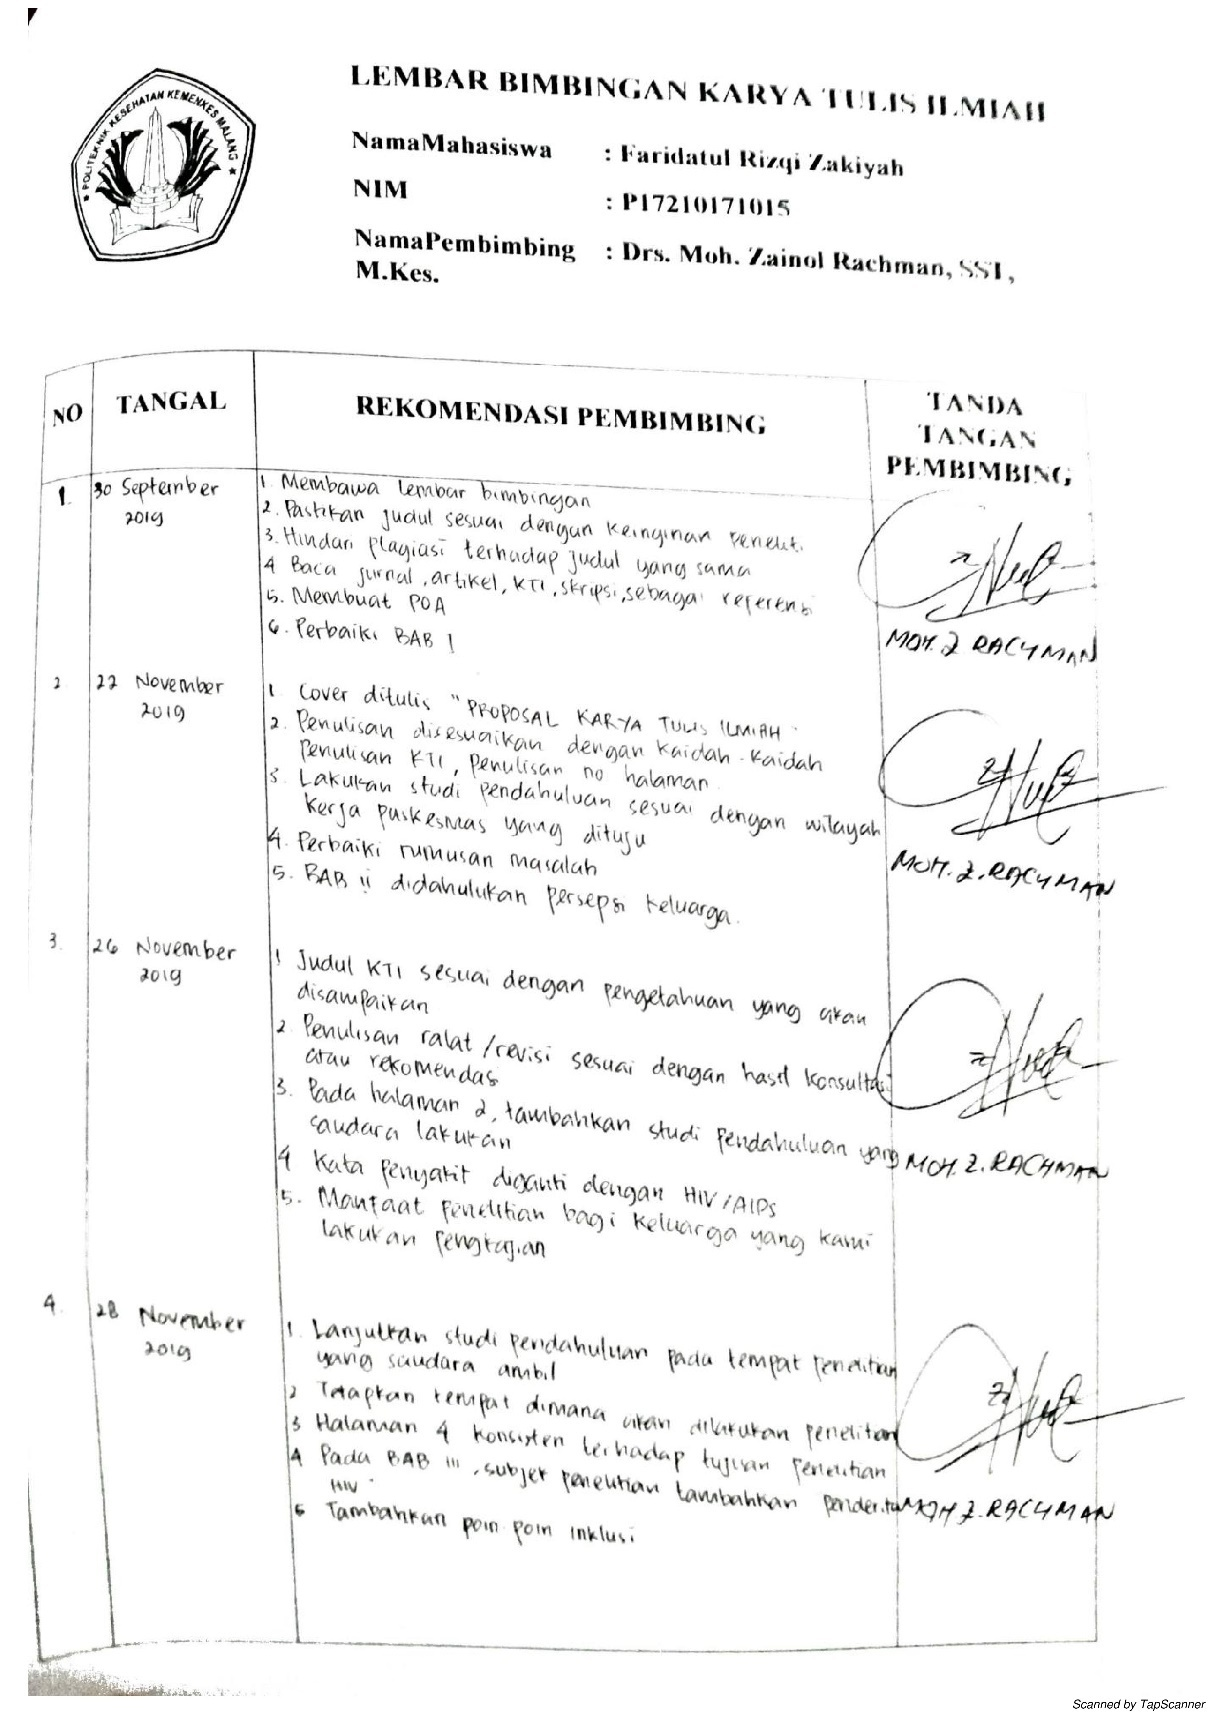 POLITEKNIK KESEHATAN KEMENKES MALANG
LEMBAR BIMBINGAN KARYA TULIS ILMIAH
NamaMahasiswa : Faridatul Rizqi Zakiyah
NIM : P17210171015
NamaPembimbing : Drs. Moh. Zainol Rachman, SST,
M.Kes.
NO TANGAL REKOMENDASI PEMBIMBING TANDA
TANGAN
PEMBIMBING
1. 30 September
2019
1. Membawa lembar bimbingan
2. Pastikan judul sesuai dengan keinginan peneliti
3. Hindari plagiasi terhadap judul yang sama
4 Baca jurnal, artikel, KTI, skripsi, sebagai referensi
5. Membuat POA
6. Perbaiki BAB I
MOH. Z RACHMAN
2 22 November
2019
1. Cover ditulis "PROPOSAL KARYA TULIS ILMIAH"
2. Penulisan disesuaikan dengan kaidah-kaidah
penulisan KTI, penulisan no halaman
3. Lakukan studi pendahuluan sesuai dengan wilayah
kerja puskesmas yang dituju
4. Perbaiki rumusan masalah
5. BAB II didahulukan persepsi keluarga.
MOH. Z. RACHMAN
3. 26 November
2019
1 Judul KTI sesuai dengan pengetahuan yang akan
disampaikan
2 Penulisan ralat/revisi sesuai dengan hasil konsultasi
atau rekomendasi
3. Pada halaman 2, tambahkan studi pendahuluan yang
saudara lakukan
4 Kata penyakit diganti dengan HIV/AIDS
5. Manfaat penelitian bagi keluarga yang kami
lakukan pengkajian
MOH. Z. RACHMAN
4. 28 November
2019
1. Lanjutkan studi pendahuluan pada tempat penelitian
yang saudara ambil
2 Tetapkan tempat dimana akan dilakukan penelitian
3 Halaman 4 konsisten terhadap tujuan penelitian
4 Pada BAB III, subjek penelitian tambahkan penderita
HIV
5 Tambahkan poin poin inklusi
MOH Z. RACHMAN
Scanned by TapScanner